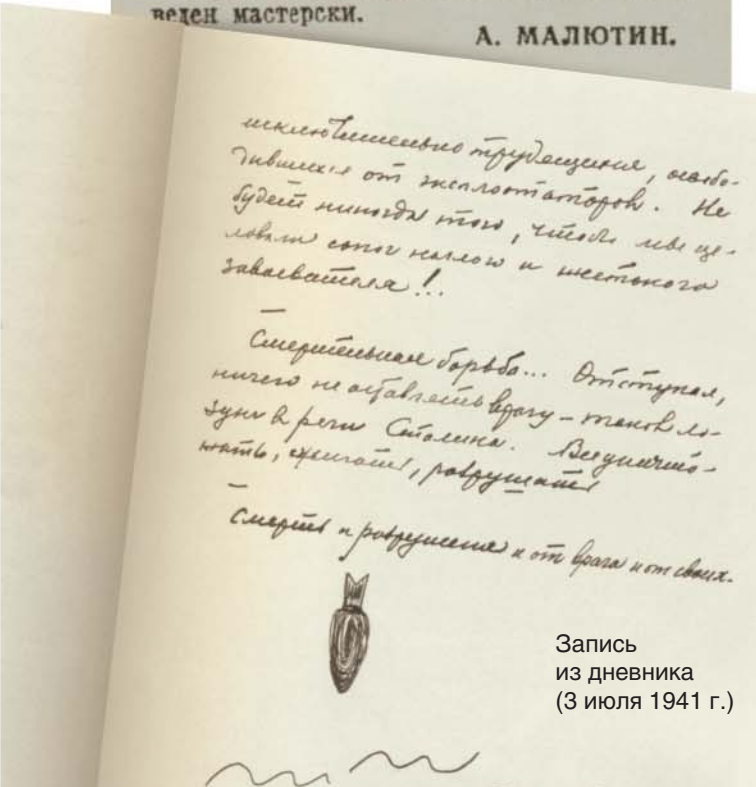 веден мастерски.
А. МАЛЮТИН.
исключительно трудящиеся, освобо-
дившихся от эксплоататоров. Не
будет никогда того, чтобы мы це-
ловали сапог наглого и жестокого
завоевателя!..
Смертельная борьба... Отступая,
ничего не оставлять врагу – таков ло-
зунг в речи Сталина. Все уничто-
жать, сжигать, разрушать
Смерть и разрушения и от врага и от своих.
Запись
из дневника
(3 июля 1941 г.)